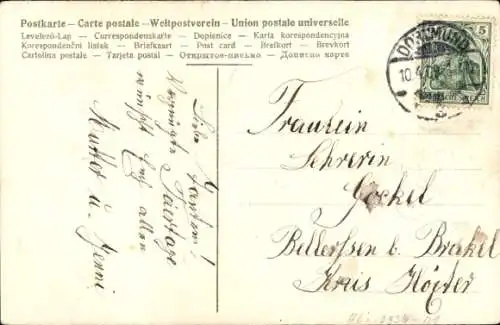 Postkarte – Carte postale – Weltpostverein – Union postale universelle
Levelező-Lap — Correspondenskarte — Dopisnice — Karta korespondencyjna
Korespondenční lístek — Briefkaart — Post card — Brefkort — Brevkort
Cartolina postale — Tarjeta postal — Открытое-письмо — Дописна карта
DORTMUND
5
Liebe
Vergnügte Feiertage
wünscht Euch allen
Mutter u. Jenni
Fräulein
Lehrerin
Gockel
Bellersen b. Brakel
Kreis Höxter